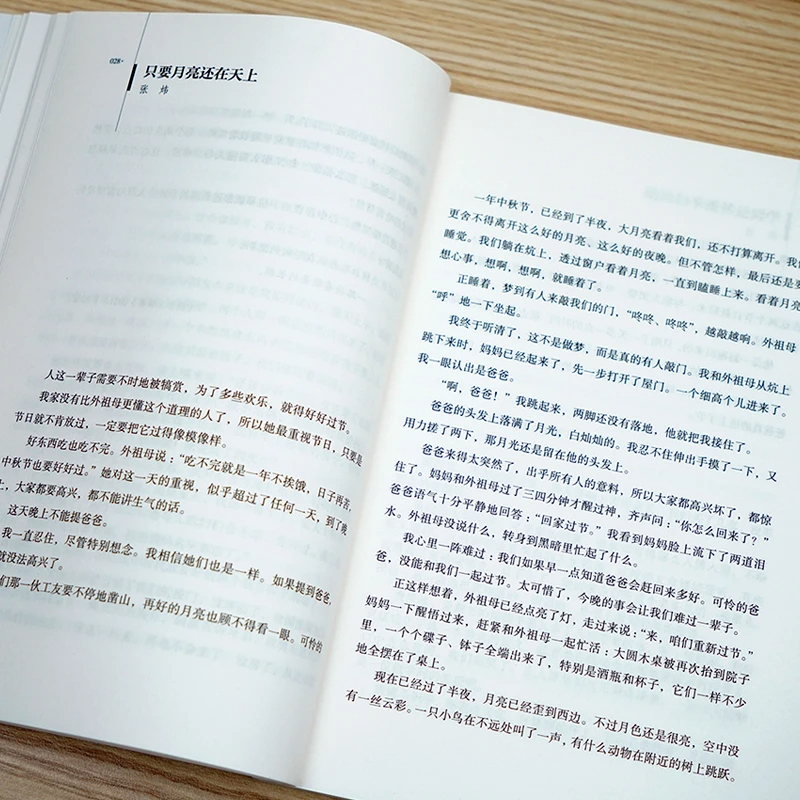 028·
只要月亮还在天上
张 炜
人这一辈子需要不时地被犒赏，为了多些欢乐，就得好好过节。
我家没有比外祖母更懂这个道理的人了，所以她最重视节日，只要是
节日就不肯放过，一定要把它过得像模像样。
好东西吃也吃不完。外祖母说：“吃不完就是一年不挨饿，日子再苦，
中秋节也要好好过。”她对这一天的重视，似乎超过了任何一天，到了晚
上，大家都要高兴，都不能讲生气的话。
这天晚上不能提爸爸。
我一直忍住，尽管特别想念。我相信她们也是一样。如果提到爸爸，
就没法高兴了。
们那一伙工友要不停地凿山，再好的月亮也顾不得看一眼。可怜的
一年中秋节，已经到了半夜，大月亮看着我们，还不打算离开。我们
更舍不得离开这么好的月亮、这么好的夜晚。但不管怎样，最后还是要
睡觉。我们躺在炕上，透过窗户看着月亮，一直到瞌睡上来。看着月亮
想心事，想啊，想啊，就睡着了。
正睡着，梦到有人来敲我们的门，“咚咚、咚咚”，越敲越响。外祖母
“呼”地一下坐起。
我终于听清了，这不是做梦，而是真的有人敲门。我和外祖母从炕上
跳下来时，妈妈已经起来了，先一步打开了屋门。一个细高个儿进来了。
我一眼认出是爸爸。
“啊，爸爸！”我跳起来，两脚还没有落地，他就把我接住了。
爸爸的头发上落满了月光，白灿灿的。我忍不住伸出手摸了一下，又
用力搓了两下，那月光还是留在他的头发上。
爸爸来得太突然了，出乎所有人的意料，所以大家都高兴坏了，都惊
住了。妈妈和外祖母过了三四分钟才醒过神，齐声问：“你怎么回来了？”
爸爸语气十分平静地回答：“回家过节。”我看到妈妈脸上流下了两道泪
水。外祖母没说什么，转身到黑暗里忙起了什么。
我心里一阵难过：我们如果早一点知道爸爸会赶回来多好。可怜的爸
爸，没能和我们一起过节。太可惜了，今晚的事会让我们难过一辈子。
正这样想着，外祖母已经点亮了灯，走过来说：“来，咱们重新过节。”
妈妈一下醒悟过来，赶紧和外祖母一起忙活：大圆木桌被再次抬到院子
里，一个个碟子、钵子全端出来了，特别是酒瓶和杯子，它们一样不少
地全摆在了桌上。
现在已经过了半夜，月亮已经歪到西边。不过月色还是很亮，空中没
有一丝云彩。一只小鸟在不远处叫了一声，有什么动物在附近的树上跳跃。